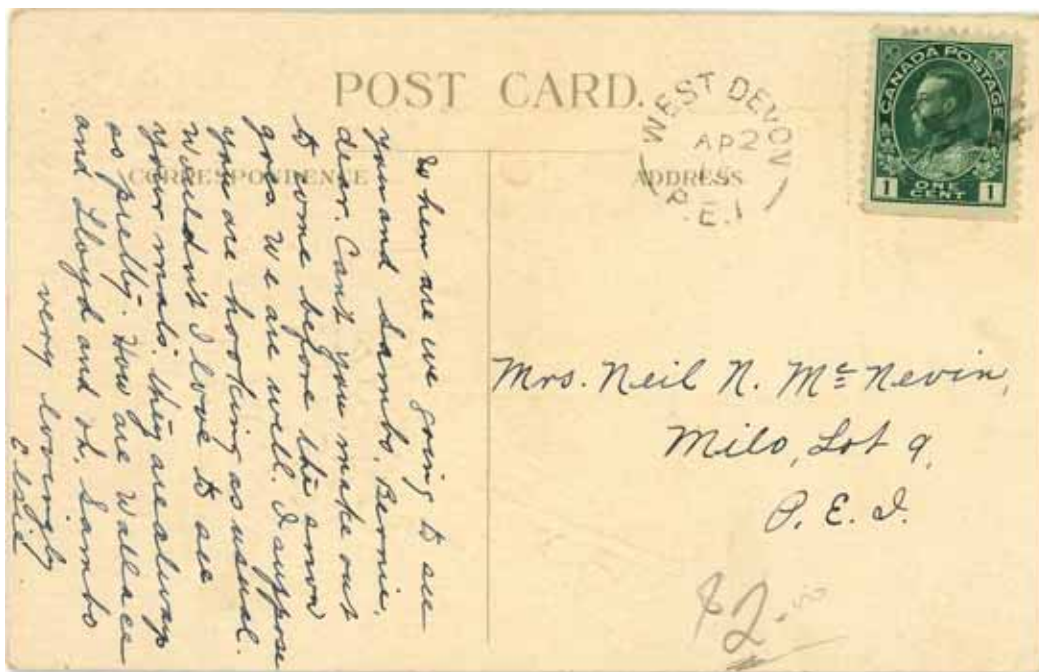 POST CARD.
CORRESPONDENCE
ADDRESS
WEST DEVON
AP 2
15
P.E.I
CANADA POSTAGE
1 ONE CENT 1
When are we going to see
you and Sambo, Bernie,
dear. Cant you make out
to come before the snow
goes. We are well. I suppose
you are hooking as usual.
Wouldn't I love to see
your mats. they are always
so pretty. How are Wallace
and Lloyd and oh, Sambo
very lovingly
Elsie
Mrs. Neil N. Mc Nevin,
Milo, Lot 9,
P. E. I.
$2.00